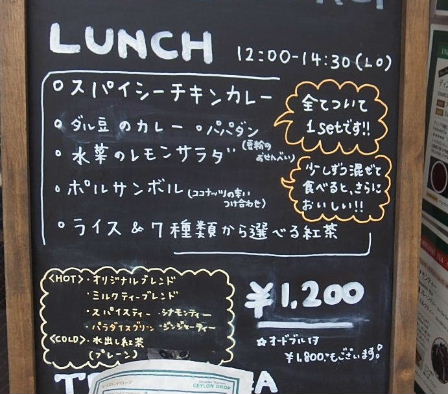 LUNCH 12:00-14:30(LO)
○スパイシーチキンカレー
○ダル豆のカレー ○パパダン
(豆粉のおせんべい)
○水菜のレモンサラダ
○ポルサンボル(ココナッツの辛いつけ合わせ)
○ライス&7種類から選べる紅茶
全てついて
1setです!!
少しずつ混ぜて
食べると、さらに
おいしい!!
<HOT>・オリジナルブレンド
・ミルクティーブレンド
・スパイスティー ・シナモンティー
・パラダイスグリーン ・ジンジャーティー
<COLD>・水出し紅茶
(プレーン)
¥1,200
☆オードブル付
¥1,800もございます。
CEYLON DROP